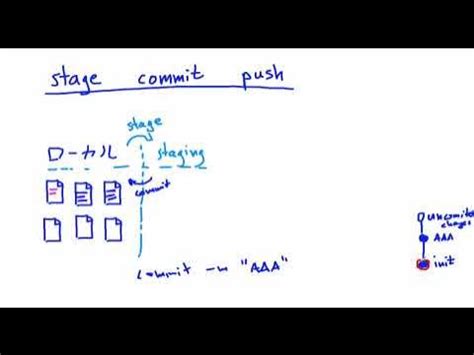 stage commit push
stage
ローカル staging
commit
commit -m "AAA"
uncommited changes
AAA
init